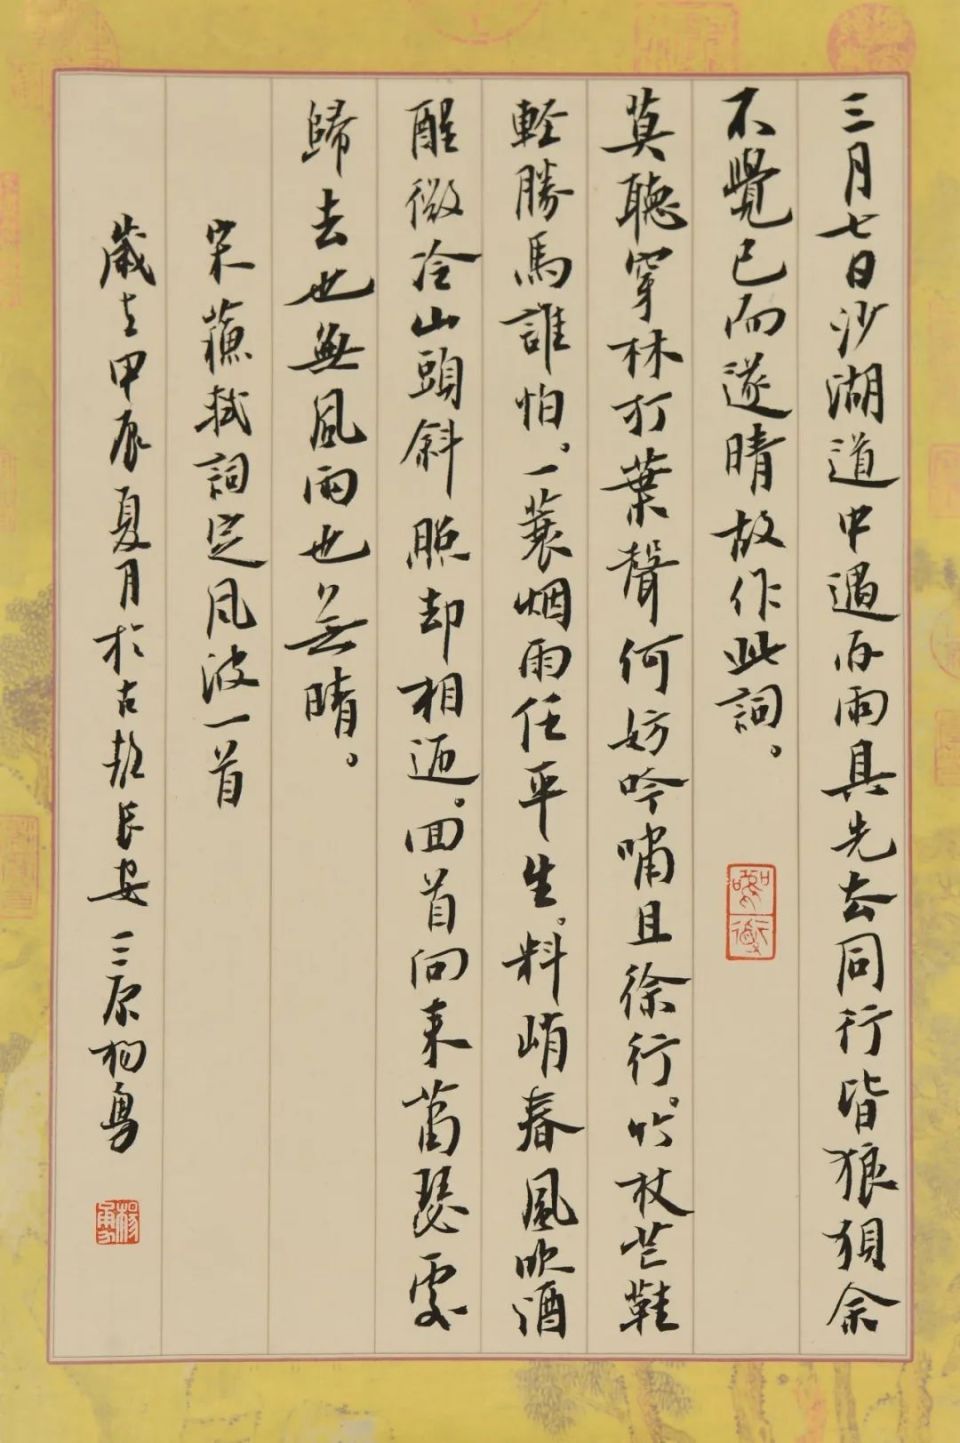 三月七日沙湖道中遇雨雨具先去同行皆狼狽余
不覺已而遂晴故作此詞。
莫聽穿林打葉聲何妨吟嘯且徐行。竹杖芒鞋
輕勝馬誰怕。一蓑烟雨任平生。料峭春風吹酒
醒微冷山頭斜照却相迎。回首向来蕭瑟處
歸去也無風雨也無晴。
宋蘇軾詞定風波一首
歲在甲辰夏月於古都長安三原楊勇
楊勇